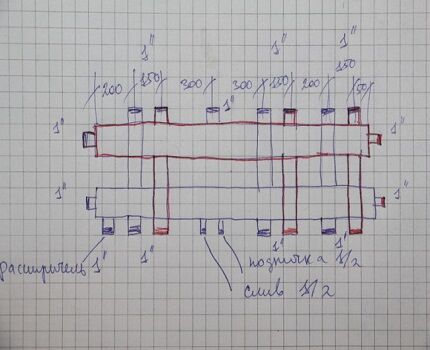 1" 1" 1"
200 150 300 300 150 200 150 50
1"
1" 1"
1" 1"
расширитель 1" 1" 1" 1"
подпитка 1/2
слив 1/2